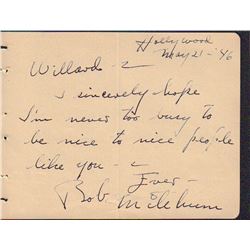 Hollywood
May 21-'46
Willard -
I sincerely hope
I'm never too busy to
be nice to nice people
like you -
Ever -
Bob Mitchum